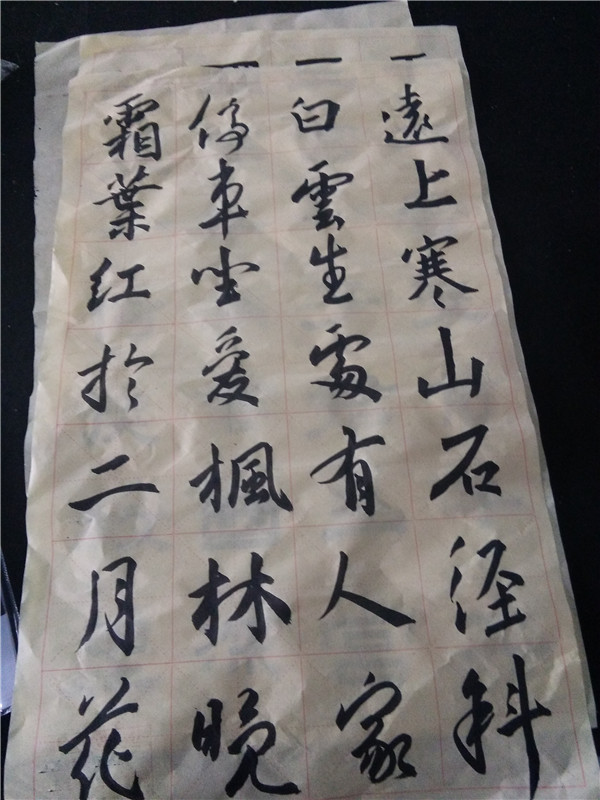 遠上寒山石径斜
白雲生處有人家
停車坐愛楓林晚
霜葉红於二月花